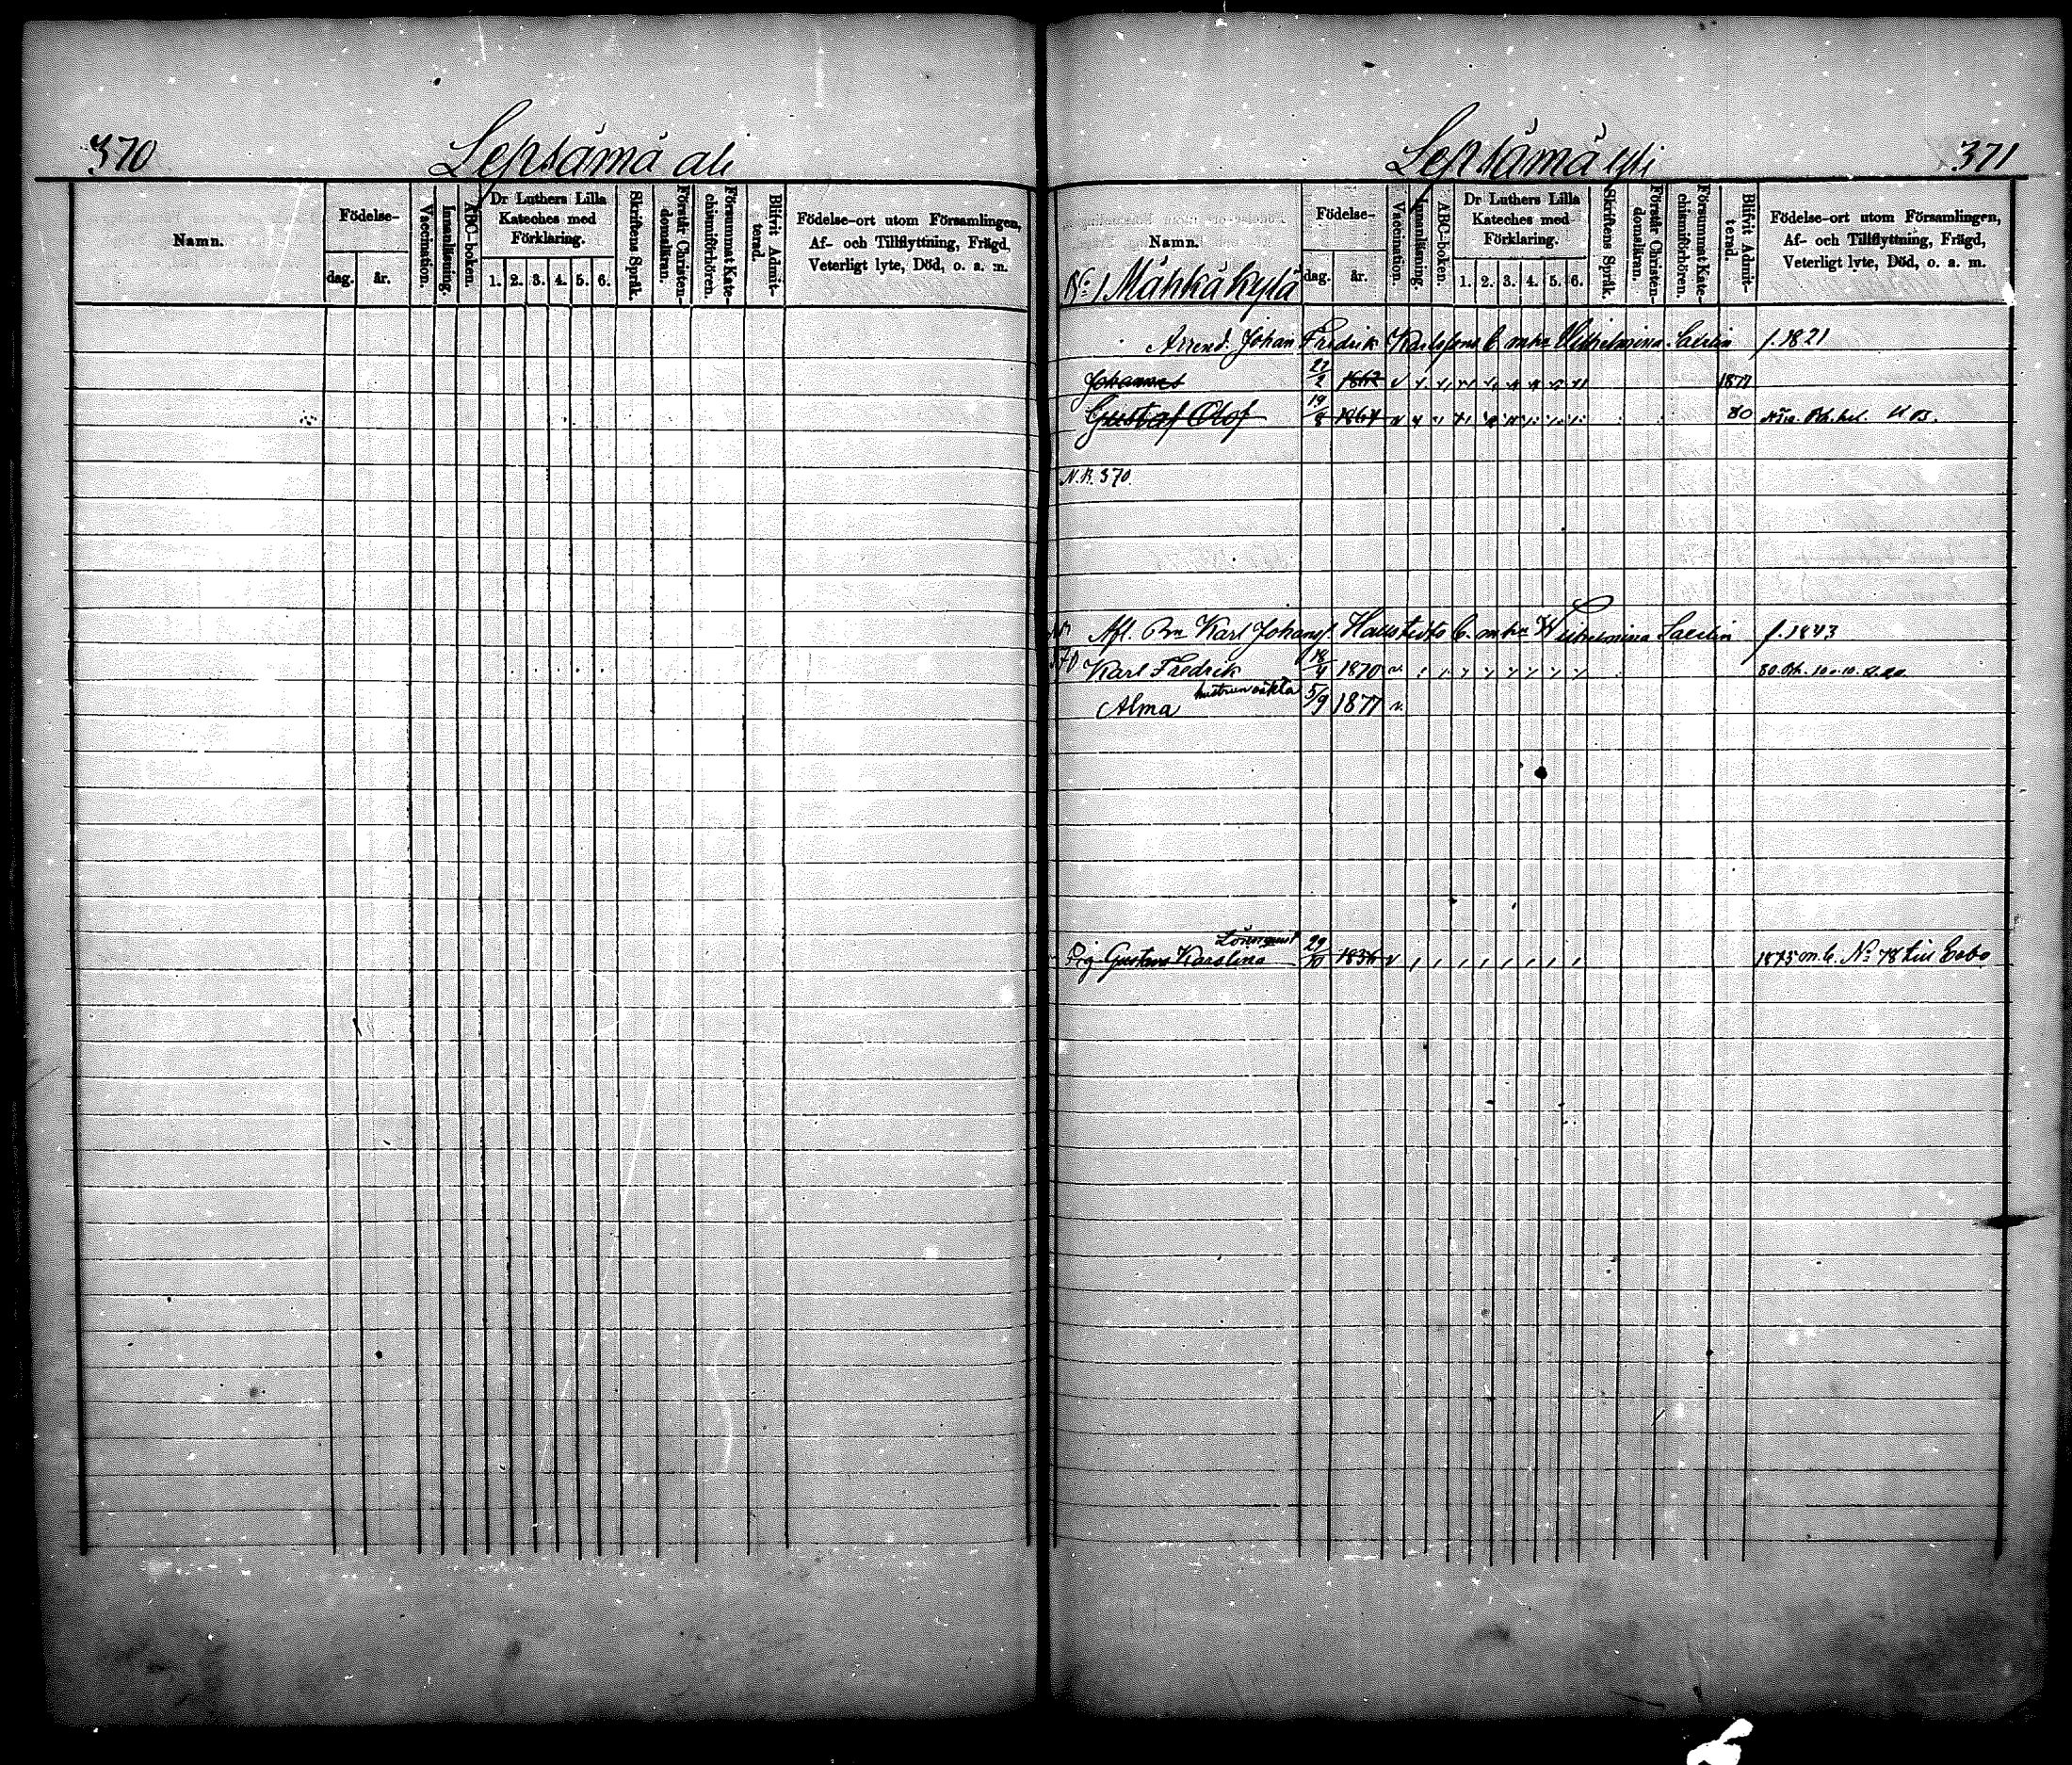 370 Lepsämä ali
Namn. Födelse- dag. år. Vaccination. Innanläsning. ABC-boken. Dr Luthers Lilla Kateches med Förklaring. 1. 2. 3. 4. 5. 6. Skriftens Språk. Förstår Christendomsläran. Försummat Katechismiförhören. Blifrit Admitterad. Födelse-ort utom Församlingen, Af- och Tillflyttning, Frägd, Veterligt lyte, Död, o. a. m.
Lepsämä yli 371
Namn. Födelse- dag. år. Vaccination. Innanläsning. ABC-boken. Dr Luthers Lilla Kateches med Förklaring. 1. 2. 3. 4. 5. 6. Skriftens Språk. Förstår Christendomsläran. Försummat Katechismiförhören. Blifrit Admitterad. Födelse-ort utom Församlingen, Af- och Tillflyttning, Frägd, Veterligt lyte, Död, o. a. m.
No 1 Mähkäkylä
Arrend. Johan Fredrik Karlssons b. m hu Vilhelmina f. 1821
Johannes 1862 1877
Gustaf Olof 19/8 1864 80
N.K. 370.
Afl. Karl Johan b. m hu f. 1843
370 Karl Fredrik 18/4 1870
Alma hustrun oäkta 5/9 1877
Pig. Gustava Karolina Lönnqvist 29/10 1836 1875 m. b. No 78 till Esbo